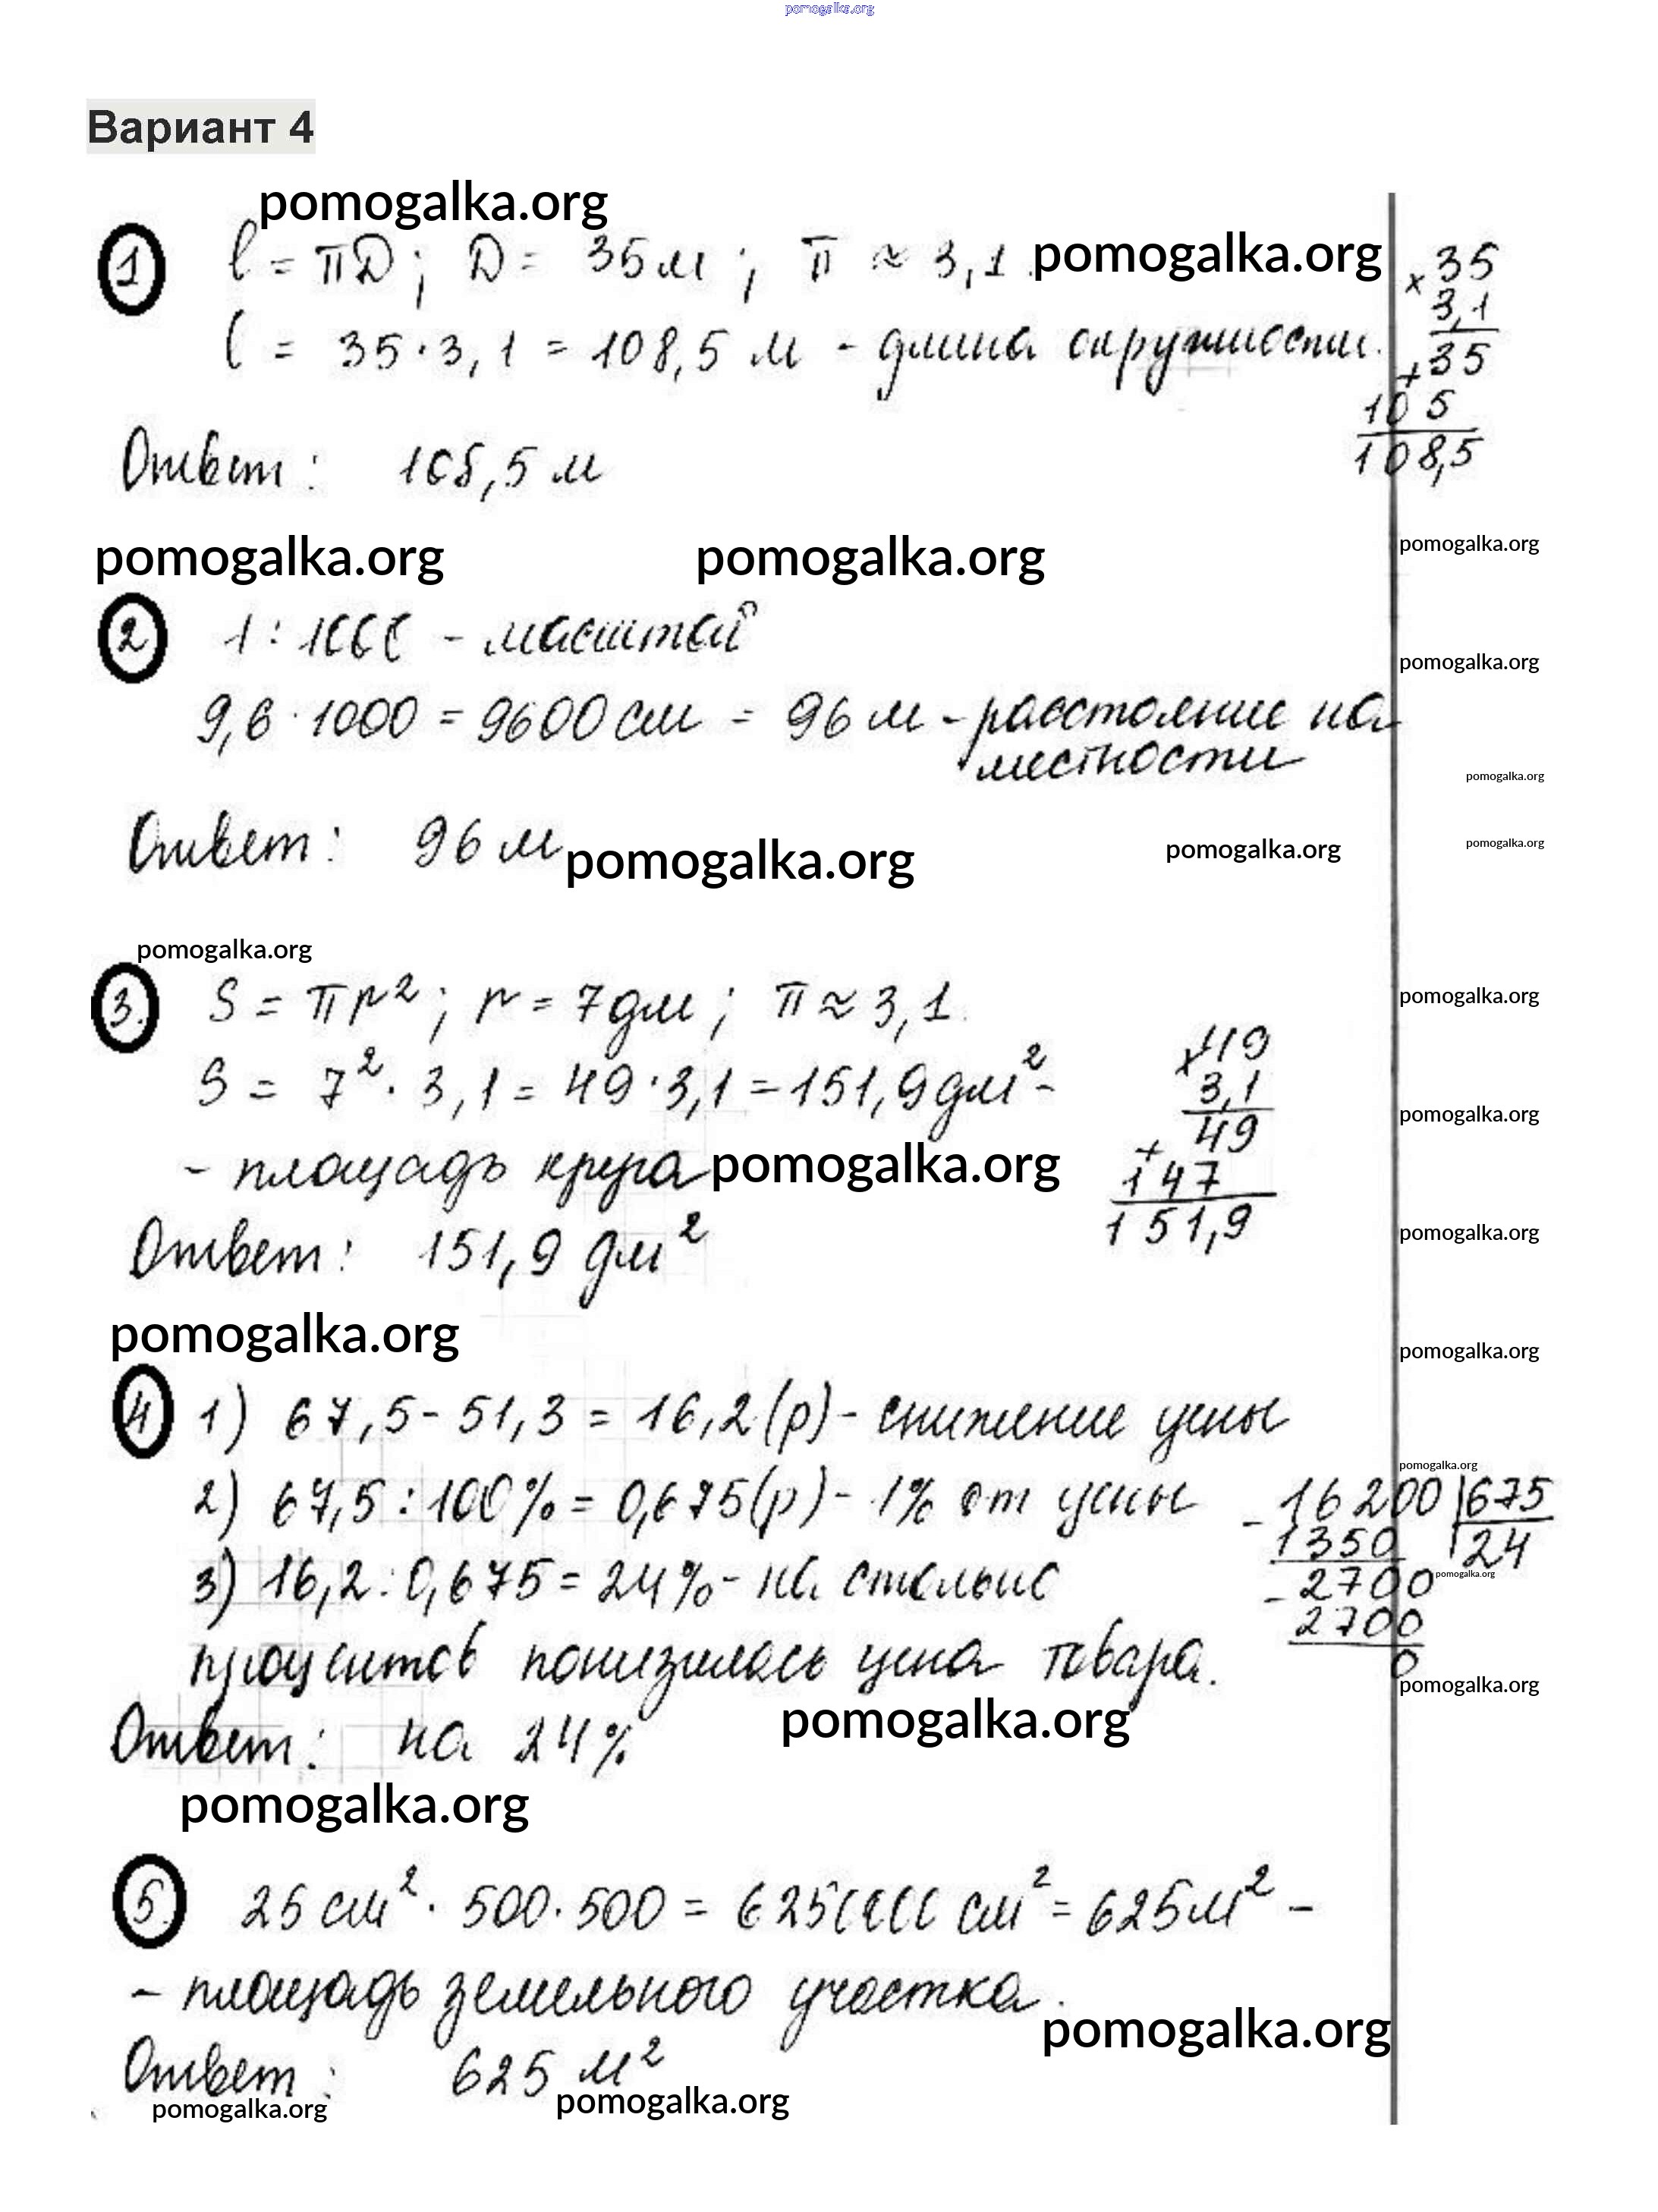 pomogalka.org
Вариант 4
pomogalka.org
1 l = πD; D = 35 м; π ≈ 3,1. pomogalka.org
× 35
3,1
l = 35·3,1 = 108,5 м - длина окружности.
+ 35
105
108,5
Ответ: 108,5 м
pomogalka.org pomogalka.org pomogalka.org
2 1 : 1000 - масштаб
pomogalka.org
9,6 · 1000 = 9600 см = 96 м - расстояние на
местности
pomogalka.org
Ответ: 96 м pomogalka.org pomogalka.org pomogalka.org
pomogalka.org
3. S = πr²; r = 7 дм; π ≈ 3,1.
pomogalka.org
S = 7² · 3,1 = 49 · 3,1 = 151,9 дм² -
× 49
3,1
+ 49
147
151,9
pomogalka.org
- площадь круга pomogalka.org
Ответ: 151,9 дм²
pomogalka.org
pomogalka.org
pomogalka.org
4 1) 67,5 - 51,3 = 16,2 (р) - снижение цены
pomogalka.org
2) 67,5 : 100% = 0,675 (р) - 1% от цены
- 16200 | 675
1350 | 24
pomogalka.org
- 2700
2700
0
3) 16,2 : 0,675 = 24% - на столько
процентов понизилась цена товара.
pomogalka.org
Ответ: на 24%
pomogalka.org
pomogalka.org
5. 25 см² · 500 · 500 = 6250000 см² = 625 м² -
- площадь земельного участка.
pomogalka.org
Ответ: 625 м²
pomogalka.org pomogalka.org